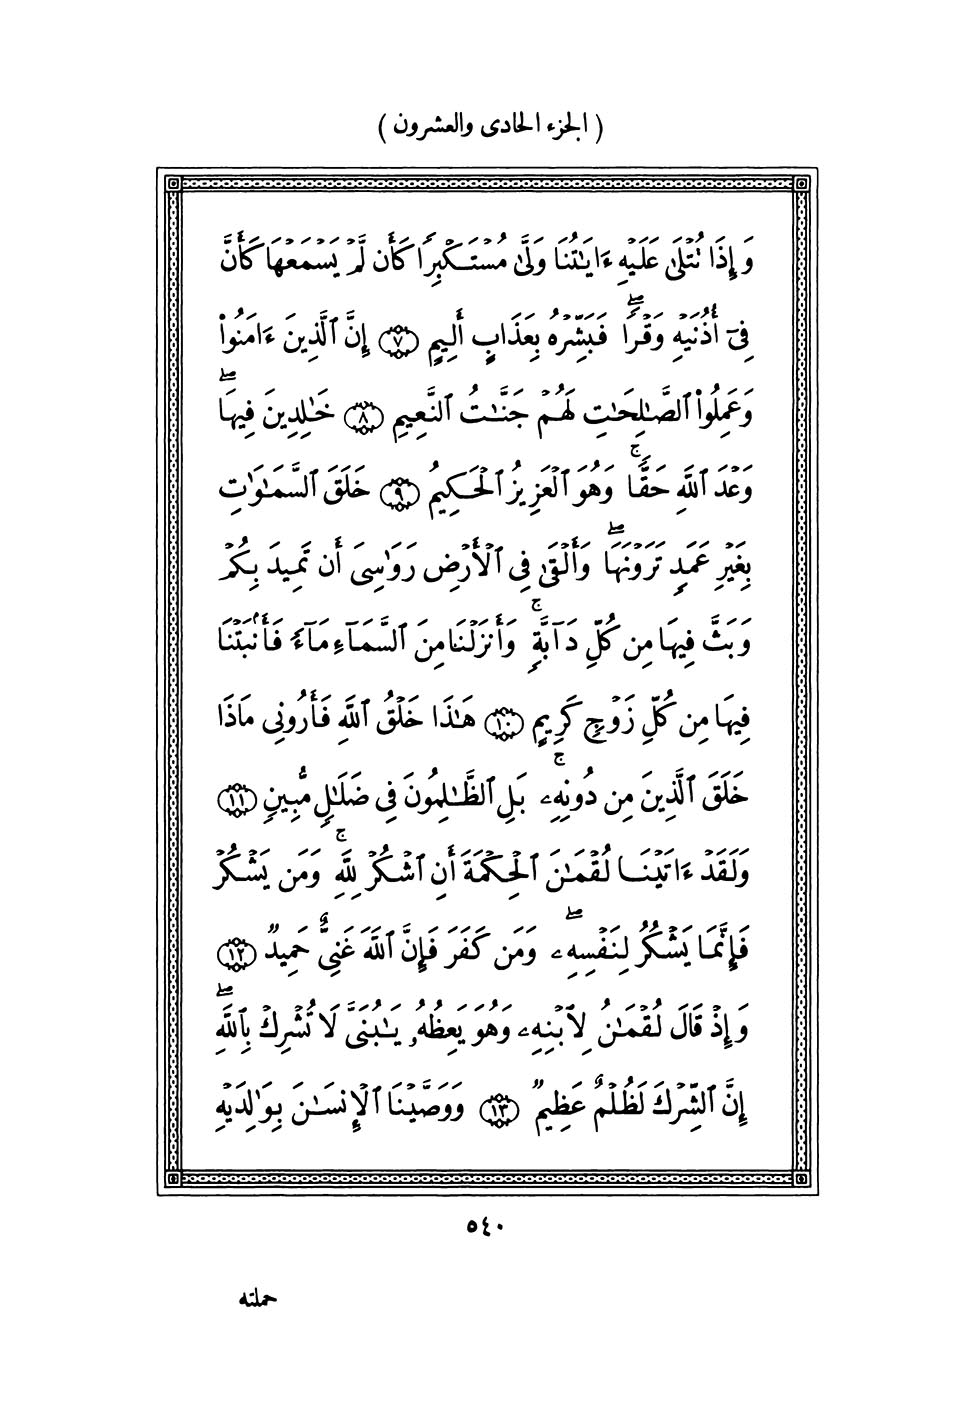 ( الجزء الحادى والعشرون )
وَإِذَا تُتْلَىٰ عَلَيْهِ ءَايَٰتُنَا وَلَّىٰ مُسْتَكْبِرًا كَأَن لَّمْ يَسْمَعْهَا كَأَنَّ
فِىٓ أُذُنَيْهِ وَقْرًۭاۖ فَبَشِّرْهُ بِعَذَابٍ أَلِيمٍ ٧ إِنَّ ٱلَّذِينَ ءَامَنُوا۟
وَعَمِلُوا۟ ٱلصَّٰلِحَٰتِ لَهُمْ جَنَّٰتُ ٱلنَّعِيمِ ٨ خَٰلِدِينَ فِيهَاۖ
وَعْدَ ٱللَّهِ حَقًّۭاۚ وَهُوَ ٱلْعَزِيزُ ٱلْحَكِيمُ ٩ خَلَقَ ٱلسَّمَٰوَٰتِ
بِغَيْرِ عَمَدٍۢ تَرَوْنَهَاۖ وَأَلْقَىٰ فِى ٱلْأَرْضِ رَوَٰسِىَ أَن تَمِيدَ بِكُمْ
وَبَثَّ فِيهَا مِن كُلِّ دَآبَّةٍۢۚ وَأَنزَلْنَا مِنَ ٱلسَّمَآءِ مَآءًۭ فَأَنۢبَتْنَا
فِيهَا مِن كُلِّ زَوْجٍۢ كَرِيمٍ ١٠ هَٰذَا خَلْقُ ٱللَّهِ فَأَرُونِى مَاذَا
خَلَقَ ٱلَّذِينَ مِن دُونِهِۦۚ بَلِ ٱلظَّٰلِمُونَ فِى ضَلَٰلٍۢ مُّبِينٍۢ ١١
وَلَقَدْ ءَاتَيْنَا لُقْمَٰنَ ٱلْحِكْمَةَ أَنِ ٱشْكُرْ لِلَّهِۚ وَمَن يَشْكُرْ
فَإِنَّمَا يَشْكُرُ لِنَفْسِهِۦۖ وَمَن كَفَرَ فَإِنَّ ٱللَّهَ غَنِىٌّ حَمِيدٌۭ ١٢
وَإِذْ قَالَ لُقْمَٰنُ لِٱبْنِهِۦ وَهُوَ يَعِظُهُۥ يَٰبُنَىَّ لَا تُشْرِكْ بِٱللَّهِۖ
إِنَّ ٱلشِّرْكَ لَظُلْمٌ عَظِيمٌۭ ١٣ وَوَصَّيْنَا ٱلْإِنسَٰنَ بِوَٰلِدَيْهِ
٥٤٠
حملته